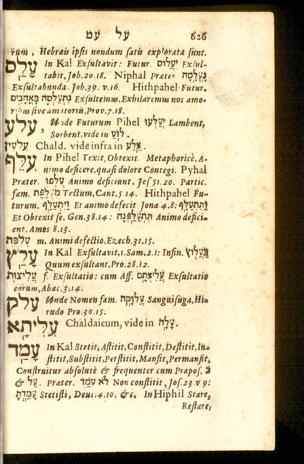 על עם 626
rum, Hebraeis ipsis nondum satis explorata sunt.
עלס In Kal Exsultavit: Futur. יעלוס Exsul-
tabit, Job. 20. 18. Niphal Praeter נעלסה
Exsultabunda. Job. 39. v. 16. Hithpahel Futur.
נתעלסה באהבים Exsultemus, Exhilaremus nos amo-
ribus sive amatoriis, Prov. 7. 18.
עלע Unde Futurum Pihel יעלעו Lambent,
Sorbent. vide in לוע.
עלעין Chald. vide infra in אלע.
עלף In Pihel Texit, Obtexit. Metaphoricè. A-
nimo deficere, quasi dolore Contegi. Pyhal
Praeter. עלפו Animo deficiunt, Jes. 51. 20. Partic.
fæm. Tectum, Cant. 5. 14. Hithpahel Fu-
turum, ויתעלף Et animo defecit Jona 4. 8: ותתעלף
Et Obtexit se. Gen. 38. 14: תתעלפנה Animo defici-
ent. Amos 8. 13.
עלפה m. Animi defectio, Ezech. 31. 15.
עלץ In Kal Exsultavit, 1. Sam. 2. 1: Infin. בעלוץ
Quum exsultant, Pro. 28. 12.
עליצות f. Exsultatio: cum Aff. עליצתם Exsultatio
eorum, Abac. 3. 14.
עלק Unde Nomen fæm. עלוקה Sanguisuga, Hi-
rudo Pro. 30. 15.
עליתא Chaldaicum, vide in עלה.
עמד In Kal Stetit, Astitit, Constitit, Destitit, In-
stitit, Substitit, Perstitit, Mansit, Permansit,
Construitur absolutè & frequenter cum Præpos. ב
& על. Præter. לא עמד Non constitit, Jos. 23. v 9:
עמדת Stetisti, Deut. 4. 10. &c. In Hiphil Stare,
Restare,